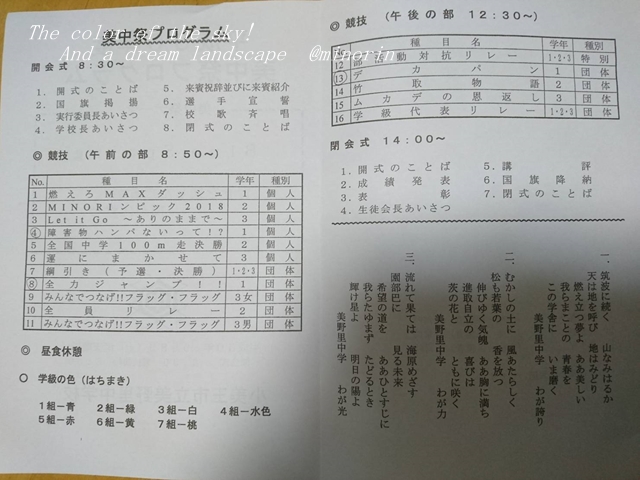 The colo of the sky!
And a dream landscape @minorin
美中祭プログラム
開会式 8:30～
1. 開式のことば
2. 国旗掲揚
3. 実行委員長あいさつ
4. 学校長あいさつ
5. 来賓祝辞並びに来賓紹介
6. 選手宣誓
7. 校歌斉唱
8. 閉式のことば
◎ 競技 (午前の部 8:50～)
No. 種目名 学年 種別
1 燃えろMAXダッシュ 1 個人
2 MINORIンピック2018 2 個人
3 Let it Go ～ありのままで～ 3 個人
④ 障害物ハンパないって!? 1 個人
5 全国中学100m走決勝 2 個人
6 運にまかせて 3 個人
7 綱引き(予選・決勝) 1・2・3 団体
⑧ 全力ジャンプ!! 1 団体
9 みんなでつなげ!!フラッグ・フラッグ 3女 団体
10 全員リレー 2 団体
11 みんなでつなげ!!フラッグ・フラッグ 3男 団体
◎ 昼食休憩
○ 学級の色(はちまき)
1組―青 2組―緑 3組―白 4組―水色
5組―赤 6組―黄 7組―桃
◎ 競技 (午後の部 12:30～)
種目名 学年 種別
12 部活動対抗リレー 1・2・3 特別
⑬ デカパン 1 団体
14 竹取物語 2 団体
15 ムカデの恩返し 3 団体
16 学級代表リレー 1・2・3 団体
閉会式 14:00～
1. 開式のことば
2. 成績発表
3. 表彰
4. 生徒会長あいさつ
5. 講評
6. 国旗降納
7. 閉式のことば
一、筑波に続く 山なみはるか
天は地を呼び 地はみどり
燃え立つ夢よ ああ美しい
我らまことの 青春を
この学舎に いま磨く
美野里中学 わが誇り
二、むかしの土に 風あたらしく
松も若葉の 香を放つ
伸びゆく気魄 ああ胸に満ち
進取自立の 喜びは
茨の花と ともに咲く
美野里中学 わが力
三、流れて果ては 海原めざす
園部巴に 見る未来
希望の道を ああひとすじに
我らたゆまず たどるとき
輝け星よ 明日の陽よ
美野里中学 わが光